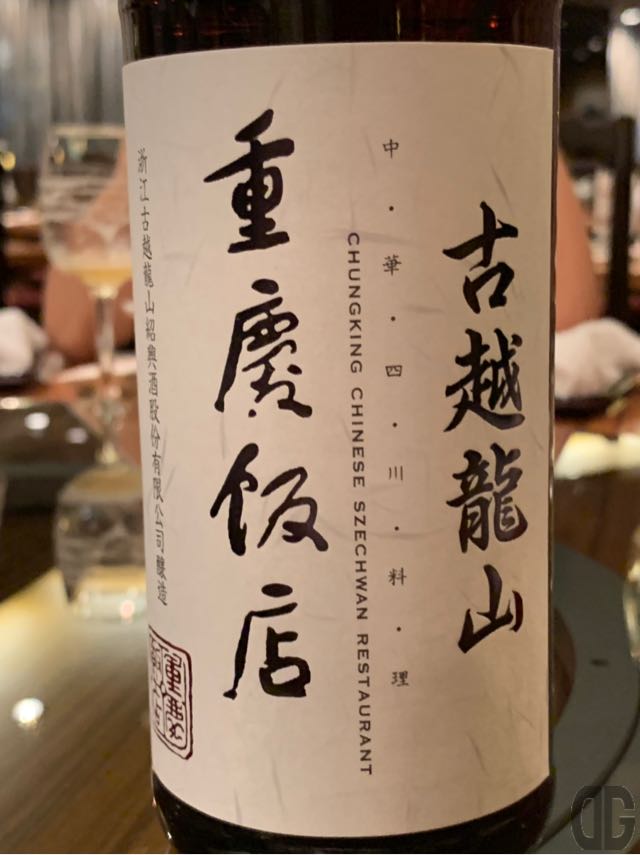 古越龍山
中・華・四・川・料・理
CHUNGKING CHINESE SZECHWAN RESTAURANT
重慶飯店
浙江古越龍山紹興酒股份有限公司釀造
DG